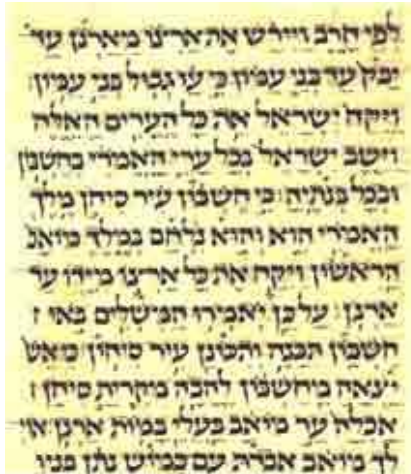 לפי חרב ויירש את ארצו מארנן עד
יבק עד בני עמון כי עז גבול בני עמון׃
ויקח ישראל את כל הערים האלה
וישב ישראל בכל ערי האמרי בחשבון
ובכל בנתיה׃ כי חשבון עיר סיחן מלך
האמרי הוא והוא נלחם במלך מואב
הראשון ויקח את כל ארצו מידו עד
ארנן׃ על כן יאמרו המשלים באו
חשבון תבנה ותכונן עיר סיחון׃ כי אש
יצאה מחשבון להבה מקרית סיחן
אכלה ער מואב בעלי במות ארנן׃ אוי
לך מואב אבדת עם כמוש נתן בניו